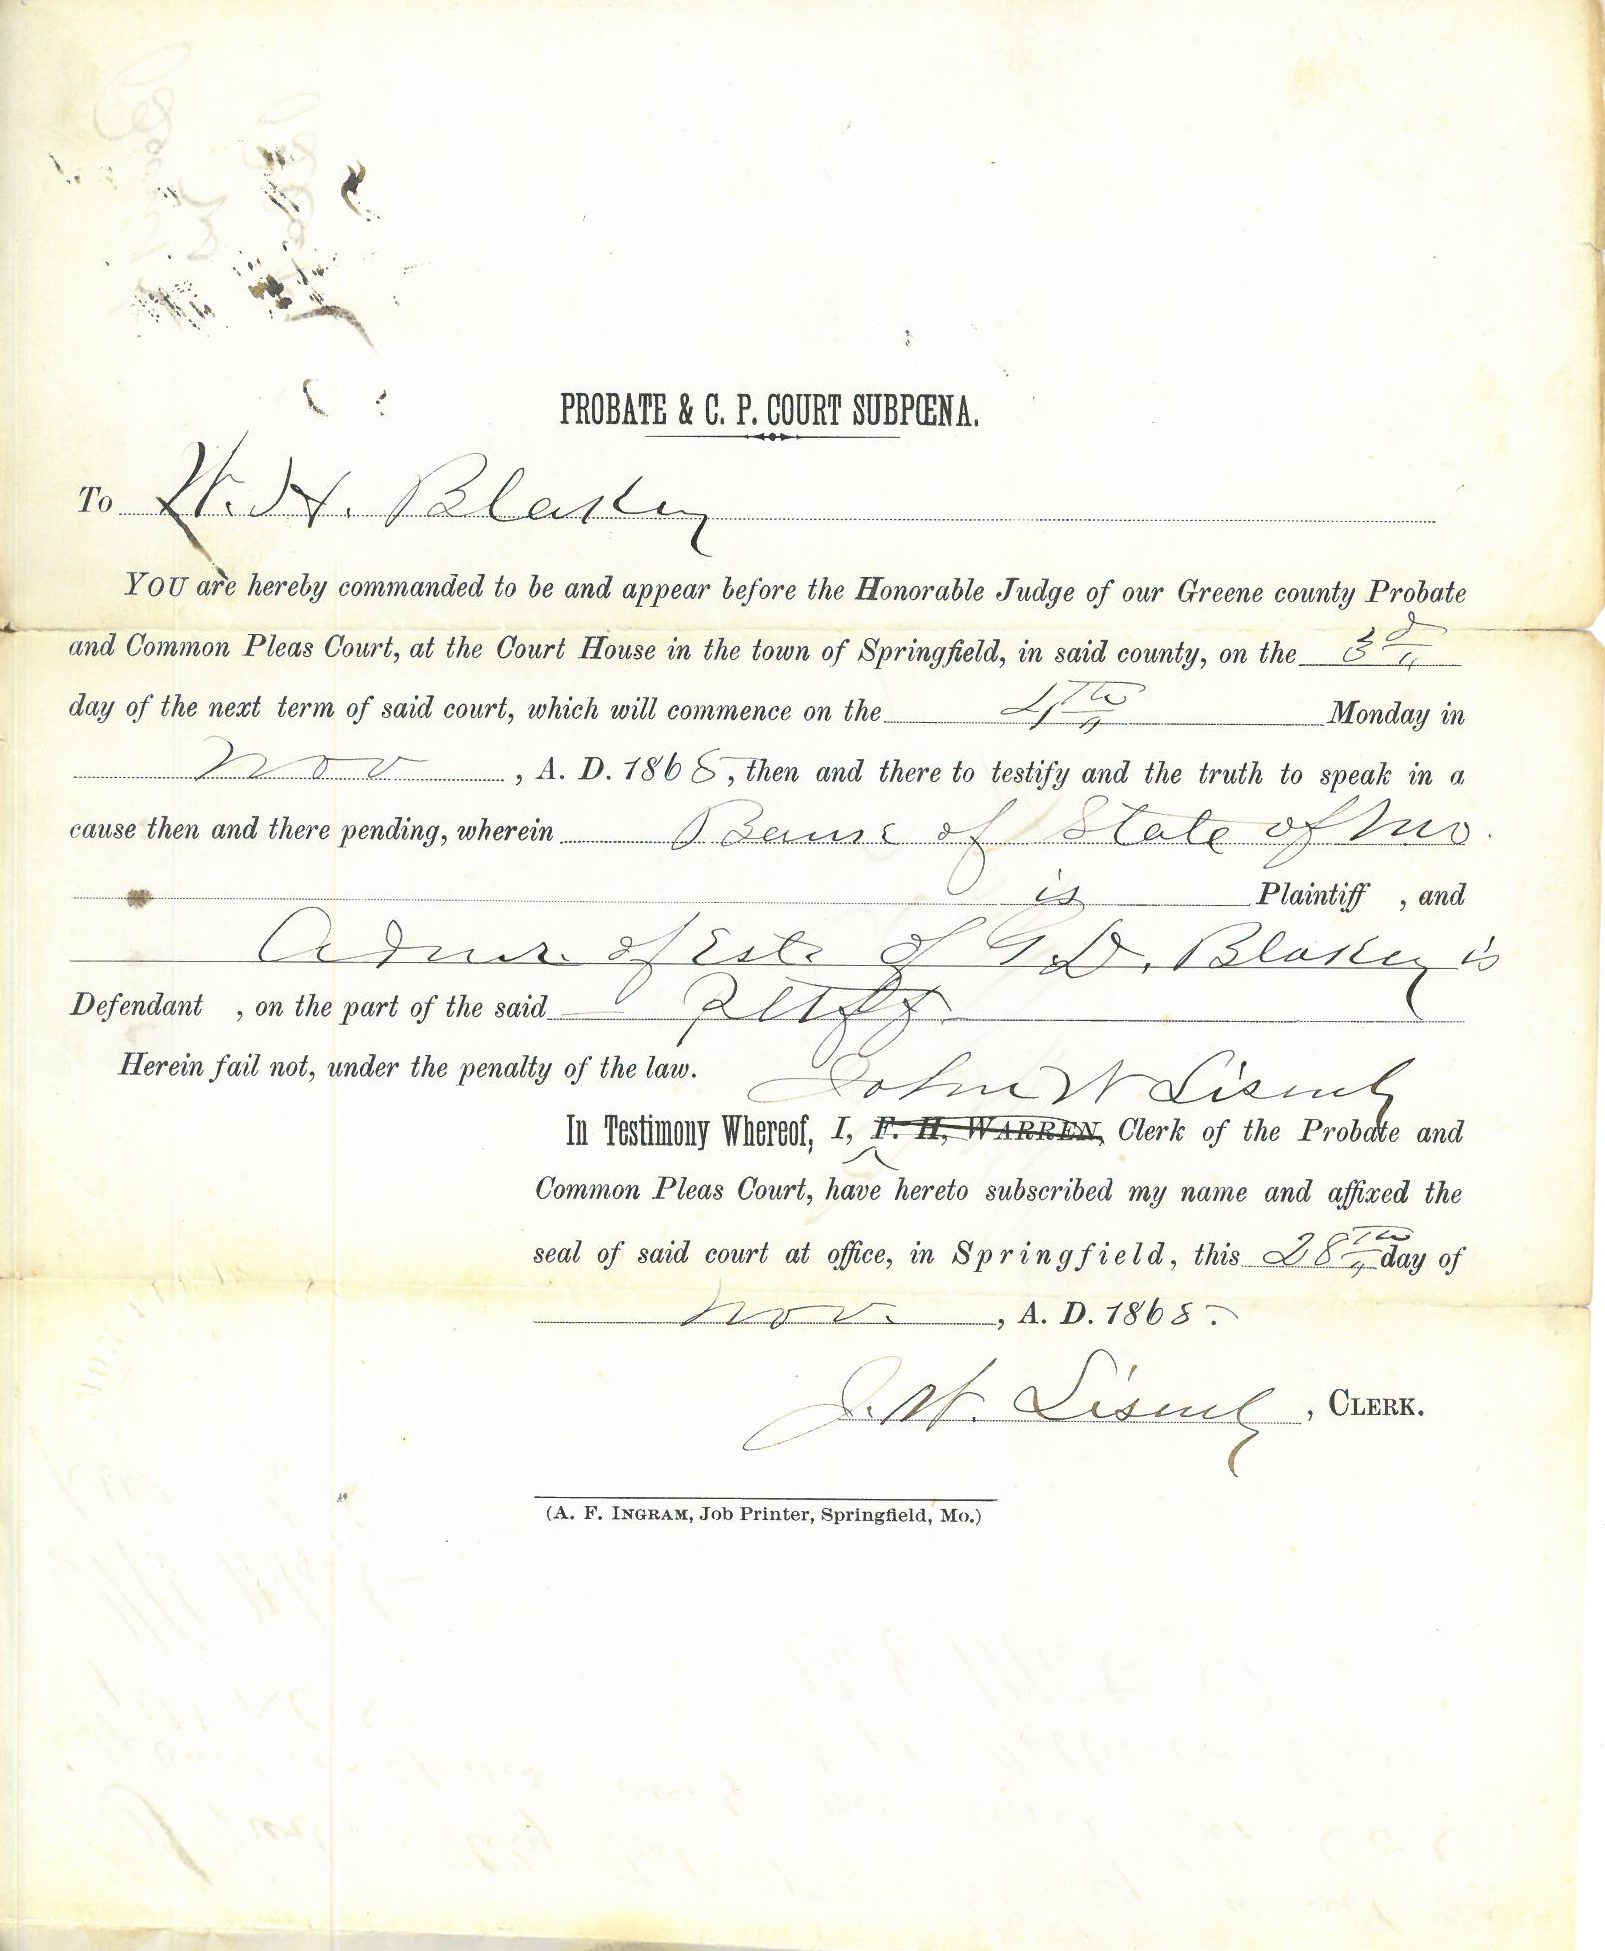 PROBATE & C. P. COURT SUBPŒNA.
To W. H. Blakey
YOU are hereby commanded to be and appear before the Honorable Judge of our Greene county Probate
and Common Pleas Court, at the Court House in the town of Springfield, in said county, on the 3d
day of the next term of said court, which will commence on the 4th Monday in
Nov , A. D. 1868, then and there to testify and the truth to speak in a
cause then and there pending, wherein of State of Mo.
is Plaintiff , and
Admr. of Est. of G. D. Blakey is
Defendant , on the part of the said Pltff
Herein fail not, under the penalty of the law.
John W Lisenby
In Testimony Whereof, I, F. H. WARREN, Clerk of the Probate and
Common Pleas Court, have hereto subscribed my name and affixed the
seal of said court at office, in Springfield, this 28th day of
Nov. , A. D. 1868.
J. W. Lisenby , CLERK.
(A. F. INGRAM, Job Printer, Springfield, Mo.)